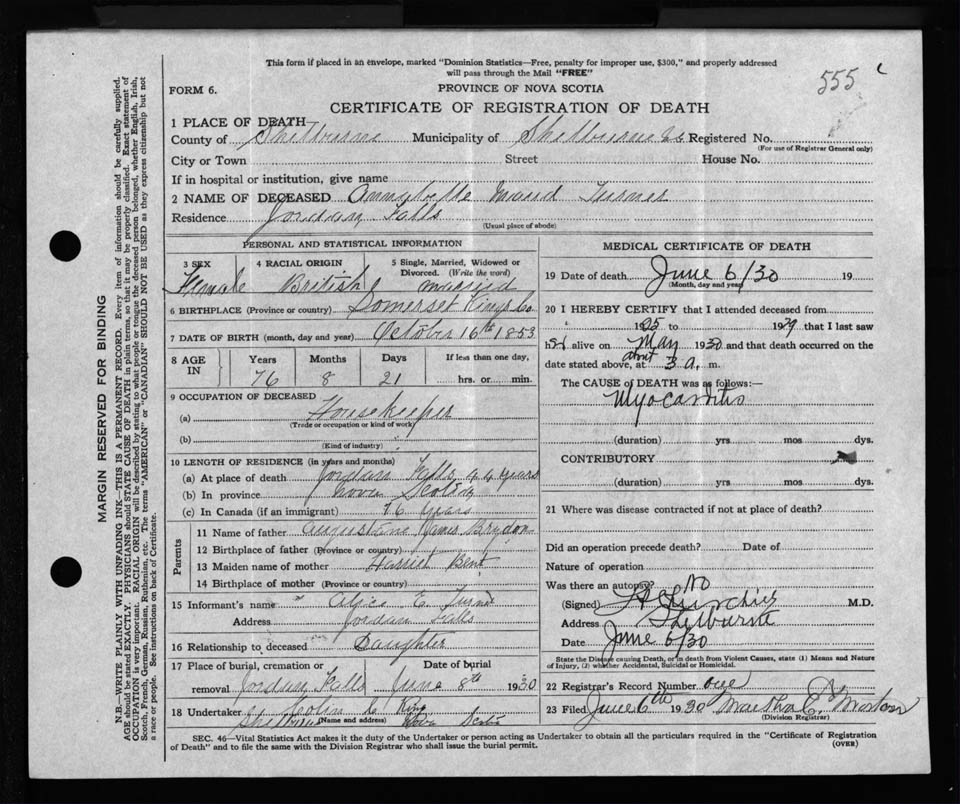 This form if placed in an envelope, marked "Dominion Statistics—Free, penalty for improper use, $300," and properly addressed
will pass through the Mail "FREE"
555
FORM 6.
PROVINCE OF NOVA SCOTIA
CERTIFICATE OF REGISTRATION OF DEATH
1 PLACE OF DEATH
County of Shelburne Municipality of Shelburne Registered No.
(For use of Registrar General only)
City or Town Street House No.
If in hospital or institution, give name
2 NAME OF DECEASED Maud Turner
Residence Jordan Falls
(Usual place of abode)
PERSONAL AND STATISTICAL INFORMATION
3 SEX 4 RACIAL ORIGIN 5 Single, Married, Widowed or
Divorced. (Write the word)
Female British married
6 BIRTHPLACE (Province or country) Somerset Kings Co
7 DATE OF BIRTH (month, day and year) October 16th 1853
8 AGE IN Years Months Days If less than one day,
76 8 21 hrs. or min.
9 OCCUPATION OF DECEASED
(a) Housekeeper
(Trade or occupation or kind of work)
(b)
(Kind of industry)
10 LENGTH OF RESIDENCE (in years and months)
(a) At place of death Jordan Falls, years
(b) In province Nova Scotia
(c) In Canada (if an immigrant) 76 years
Parents
11 Name of father Augustine James Brydon
12 Birthplace of father (Province or country)
13 Maiden name of mother Harriet Bent
14 Birthplace of mother (Province or country)
15 Informant's name Alice E. Turner
Address Jordan Falls
16 Relationship to deceased Daughter
17 Place of burial, cremation or Date of burial
removal Jordan Falls June 8th 1930
18 Undertaker Colin King
Shelburne (Name and address) Nova Scotia
MEDICAL CERTIFICATE OF DEATH
19 Date of death June 6/30 19
(Month, day and year)
20 I HEREBY CERTIFY that I attended deceased from
1925 to 1929 that I last saw
her alive on May 1930 and that death occurred on the
date stated above, at about 3 a. m.
The CAUSE OF DEATH was as follows:—
Myocarditis
(duration) yrs mos dys.
CONTRIBUTORY
(duration) yrs mos dys.
21 Where was disease contracted if not at place of death?
Did an operation precede death? Date of
Nature of operation
Was there an autopsy? No
(Signed) M.D.
Address Shelburne
Date June 6/30
State the Disease causing Death, or in death from Violent Causes, state (1) Means and Nature
of Injury, (2) whether Accidental, Suicidal or Homicidal.
22 Registrar's Record Number one
23 Filed June 6th 1930 Martha
(Division Registrar)
SEC. 46—Vital Statistics Act makes it the duty of the Undertaker or person acting as Undertaker to obtain all the particulars required in the "Certificate of Registration
of Death" and to file the same with the Division Registrar who shall issue the burial permit.
(OVER)
MARGIN RESERVED FOR BINDING
N.B.—WRITE PLAINLY WITH UNFADING INK—THIS IS A PERMANENT RECORD. Every item of information should be carefully supplied.
AGE should be stated EXACTLY. PHYSICIANS should STATE CAUSE OF DEATH in plain terms, so that it may be properly classified. Exact statement of
OCCUPATION is very important. RACIAL ORIGIN will be described by stating to what people or tongue the deceased person belonged, whether English, Irish,
Scotch, French, German, Russian, Ruthenian, etc. The terms "AMERICAN" or "CANADIAN" SHOULD NOT BE USED as they express citizenship but not
a race or people. See instructions on back of Certificate.